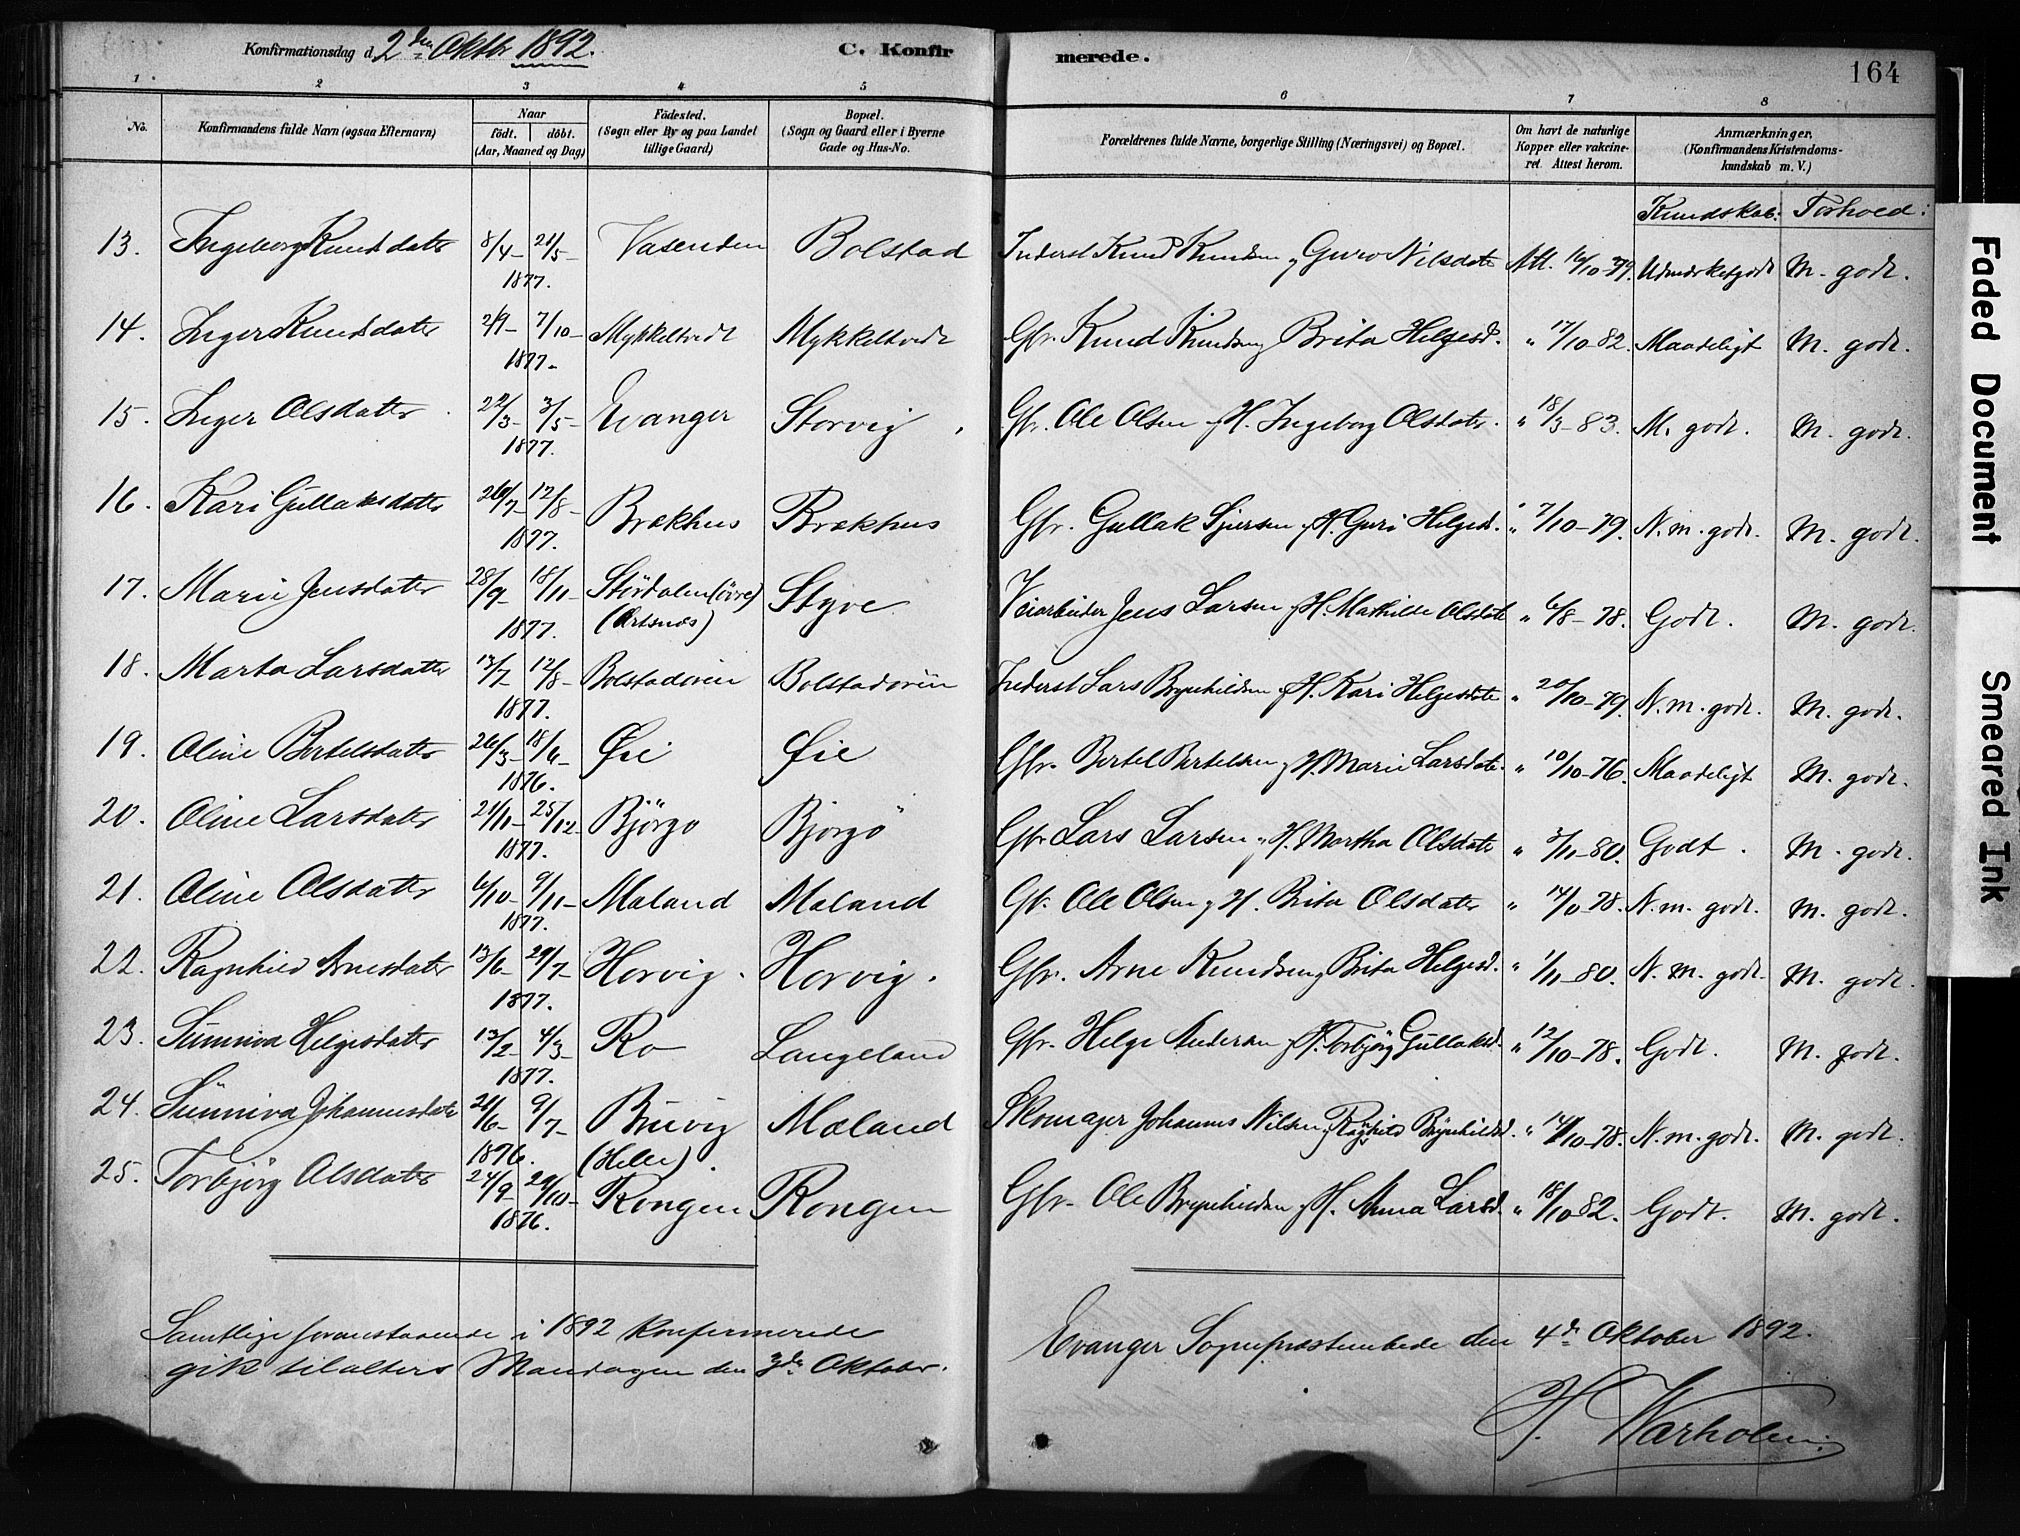 Konfirmationsdag d. 2den Oktbr 1892. C. Konfirmerede. 164
1 2 3 4 5 6 7 8
No. Konfirmandens fulde Navn (ogsaa Efternavn) Naar födt. döbt. (Aar, Maaned og Dag) Födested. (Sogn eller By og paa Landet tillige Gaard) Bopæl. (Sogn og Gaard eller i Byerne Gade og Hus-No. Forældrenes fulde Navne, borgerlige Stilling (Næringsvei) og Bopæl. Om havt de naturlige Kopper eller vakcineret. Attest herom. Anmærkninger. (Konfirmandens Kristendomskundskab m. V.)
Kundskab: Forhold:
13. Ingeborg Knudsdatter 8/4- 21/5- 1877. Vasenden Bolstad Inderst Knud Knudsen og Guro Nilsdatter Att. 16/10-79. Udmærket godt M. godt.
14. Inger Knudsdatter 2/9- 7/10- 1877. Mykkeltvedt Mykkeltvedt Gbr. Knud Knudsen og Brita Helgesd. " 17/10-82. Maadeligt M. godt.
15. Inger Olsdatter 22/3- 3/5- 1877. Evanger Storvig Gbr. Ole Olsen og H. Ingeborg Olsdatter. " 18/3-83. M. godt. M. godt.
16. Kari Gullaksdatter 26/7- 12/8- 1877. Brækhus Brækhus Gbr. Gullak Sjursen og H. Guri Helgesd. " 7/10-79. N. m. godt. M. godt.
17. Marie Jensdatter 28/9- 18/11- 1877. Stördalen (övre) (Ertsnæs) Styve Veiarbeider Jens Larsen og H. Mathilde Olsdatter " 6/8-78. Godt. M. godt.
18. Marta Larsdatter 13/7- 12/8- 1877. Bolstadören Bolstadören Inderst Lars Brynhildsen og H. Kari Helgesdatter " 20/10-79. N. m. godt. M. godt.
19. Oline Bertelsdatter 26/3- 18/6- 1876. Øie Øie Gbr. Bertel Bertelsen og H. Marie Larsdatter. " 10/10-76. Maadeligt M. godt.
20. Oline Larsdatter 21/11- 25/12- 1877. Björgo Björgo Gbr. Lars Larsen og H. Martha Olsdatter " 3/11-80. Godt. M. godt.
21. Oline Olsdatter 6/10- 9/11- 1877. Mæland Mæland Gbr. Ole Olsen og H. Brita Olsdatter " 14/10-78. N. m. godt. M. godt.
22. Ragnhild Arnesdatter 13/6- 29/7- 1877. Horvig. Horvig. Gbr. Arne Knudsen og Brita Helgesd. " 1/11-80. N. m. godt. M. godt.
23. Sünniva Helgesdatter 13/2- 4/3- 1877. Ro Langeland Gbr. Helge Andersen og H. Torbjörg Gullaksd. " 12/10-78. Godt. M. godt.
24. Sünniva Johannesdatter 21/6- 9/7- 1876. Bruvig (Helle). Mæland Skomager Johannes Nilsen og Ragnhild Brynhildsd. " 14/10-78. N. m. godt. M. godt.
25. Torbjörg Olsdatter 24/9- 29/10- 1876. Rongen Rongen Gbr. Ole Brynhildsen og H. Anna Larsd. " 18/10-82. Godt. M. godt.
Samtlige foranstaaende i 1892 konfirmerede
gik til alters Mandagen den 3die Oktober.
Evanger Sognepræstembede den 4de Oktober 1892.
H. Warholm.
Faded Document
Smeared Ink